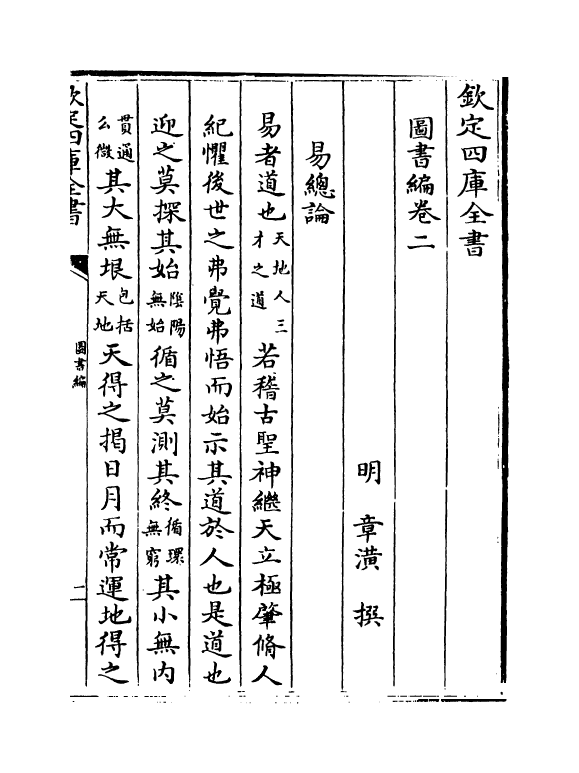 欽定四庫全書
圖書編卷二
明 章潢 撰
易總論
易者道也天地人三才之道若稽古聖神繼天立極肇脩人
紀懼後世之弗覺弗悟而始示其道於人也是道也
迎之莫探其始陰陽無始循之莫測其終循環無窮其小無内
貫通么微其大無垠包括天地天得之掲日月而常運地得之
欽定四庫全書
圖書編
二